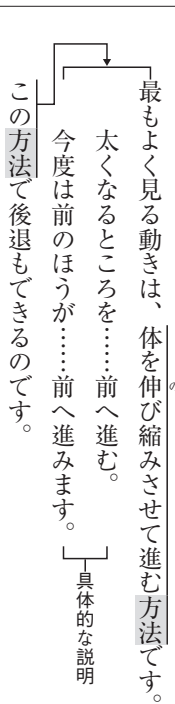 最もよく見る動きは、体を伸び縮みさせて進む方法です。
の
太くなるところを……前へ進む。
今度は前のほうが……前へ進みます。
具体的な説明
この方法で後退もできるのです。